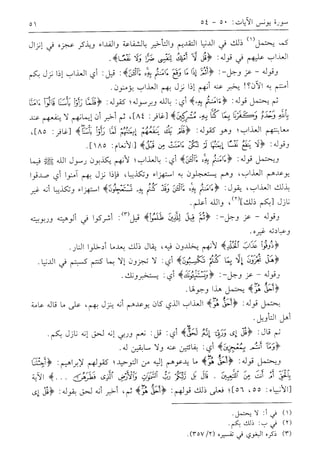 سورة يونس الآيات: ٥٠ - ٥٤
٥١
كما يحتمل(١) ذلك في الدنيا التقديم والتأخير بالشفاعة والفداء ويذكر عجزه في إنزال
العذاب عليهم في قوله: ﴿قُل لَّا أَمْلِكُ لِنَفْسِي ضَرًّا وَلَا نَفْعًا﴾.
وقوله - عز وجل-: ﴿أَثُمَّ إِذَا مَا وَقَعَ ءَامَنتُم بِهِ ءَآلْـَٰٔنَ﴾: قيل: أي العذاب إذا نزل بكم
آمنتم به الآن؟! يخبر عنه أنهم إذا نزل بهم العذاب يؤمنون.
ثم يحتمل قوله: ﴿ءَامَنتُم بِهِ﴾ أي: بالله وبرسوله؛ كقوله: ﴿فَلَمَّا رَأَوْا بَأْسَنَا قَالُوا ءَامَنَّا
بِاللَّهِ وَحْدَهُ وَكَفَرْنَا بِمَا كُنَّا بِهِ مُشْرِكِينَ﴾ [غافر: ٨٤]، ثم أخبر أن إيمانهم لا ينفعهم عند
معاينتهم العذاب؛ وهو كقوله: ﴿فَلَمْ يَكُ يَنفَعُهُمْ إِيمَانُهُمْ لَمَّا رَأَوْا بَأْسَنَا﴾ [غافر: ٨٥].
وكقوله: ﴿لَا يَنفَعُ نَفْسًا إِيمَانُهَا لَمْ تَكُنْ ءَامَنَتْ مِن قَبْلُ﴾ [الأنعام: ١٥٨].
ويحتمل قوله: ﴿ءَامَنتُم بِهِ﴾ أي: بالعذاب؛ لأنهم يكذبون رسول الله ﷺ فيما
يوعدهم العذاب، وهم يستعجلون به استهزاء وتكذيبا، فإذا نزل بهم آمنوا أي صدقوا
بذلك العذاب، يقول: ﴿ءَامَنتُم بِهِ ءَآلْـَٰٔنَ وَقَدْ كُنتُم بِهِ تَسْتَعْجِلُونَ﴾ استهزاء وتكذيبا أنه غير
نازل [بكم ذلك](٢)، والله أعلم.
وقوله - عز وجل-: ﴿ثُمَّ قِيلَ لِلَّذِينَ ظَلَمُوا﴾ قيل(٣): أشركوا في ألوهيته وربوبيته
وعبادته غيره.
﴿ذُوقُوا عَذَابَ الْخُلْدِ﴾ لأنهم يخلدون فيه، يقال ذلك بعدما أدخلوا النار.
﴿هَلْ تُجْزَوْنَ إِلَّا بِمَا كُنتُمْ تَكْسِبُونَ﴾ أي: لا تجزون إلا بما كنتم كسبتم في الدنيا.
وقوله - عز وجل-: ﴿وَيَسْتَنبِئُونَكَ﴾ أي: يستخبرونك.
﴿أَحَقٌّ هُوَ﴾ يحتمل هذا وجوها.
يحتمل قوله: ﴿أَحَقٌّ هُوَ﴾ العذاب الذي كان يوعدهم أنه ينزل بهم، على ما قاله عامة
أهل التأويل.
ثم قال: ﴿قُلْ إِي وَرَبِّي إِنَّهُ لَحَقٌّ﴾ أي: قل: نعم وربي إنه لحق إنه نازل بكم.
﴿وَمَا أَنتُم بِمُعْجِزِينَ﴾ أي: بفائتين عنه ولا سابقين له.
ويحتمل قوله: ﴿أَحَقٌّ هُوَ﴾ ما يدعوهم إليه من التوحيد؛ كقولهم لإبراهيم: ﴿أَجِئْتَنَا
بِالْحَقِّ أَمْ أَنتَ مِنَ اللَّاعِبِينَ . قَالَ بَل رَّبُّكُمْ رَبُّ السَّمَاوَاتِ وَالْأَرْضِ الَّذِي فَطَرَهُنَّ . . .﴾ الآية
[الأنبياء: ٥٥، ٥٦]؛ فعلى ذلك قولهم: ﴿أَحَقٌّ هُوَ﴾ ثم، أخبر أنه لحق بقوله: ﴿قُلْ إِي
(١) في أ: لا يحتمل.
(٢) في ب: ذلك بكم.
(٣) ذكره البغوي في تفسيره (٣٥٧/٢).